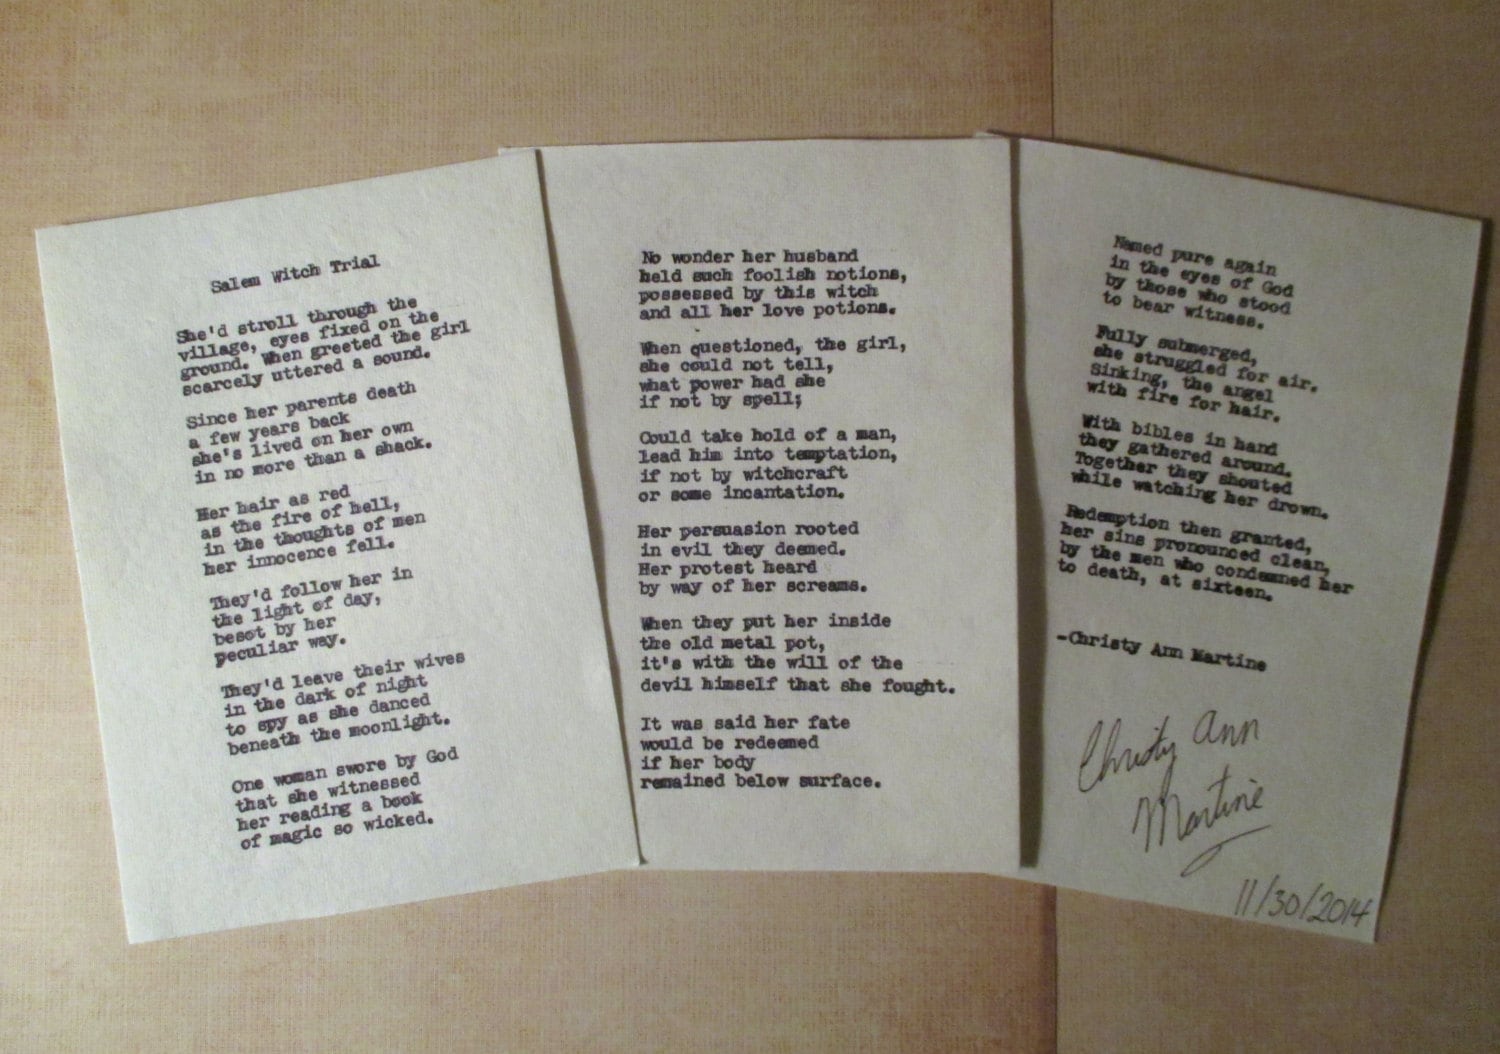 Salem Witch Trial
She'd stroll through the
village, eyes fixed on the
ground. When greeted the girl
scarcely uttered a sound.
Since her parents death
a few years back
she's lived on her own
in no more than a shack.
Her hair as red
as the fire of hell,
in the thoughts of men
her innocence fell.
They'd follow her in
the light of day,
besot by her
peculiar way.
They'd leave their wives
in the dark of night
to spy as she danced
beneath the moonlight.
One woman swore by God
that she witnessed
her reading a book
of magic so wicked.
No wonder her husband
held such foolish notions,
possessed by this witch
and all her love potions.
When questioned, the girl,
she could not tell,
what power had she
if not by spell;
Could take hold of a man,
lead him into temptation,
if not by witchcraft
or some incantation.
Her persuasion rooted
in evil they deemed.
Her protest heard
by way of her screams.
When they put her inside
the old metal pot,
it's with the will of the
devil himself that she fought.
It was said her fate
would be redeemed
if her body
remained below surface.
Named pure again
in the eyes of God
by those who stood
to bear witness.
Fully submerged,
she struggled for air.
Sinking, the angel
with fire for hair.
With bibles in hand
they gathered around.
Together they shouted
while watching her drown.
Redemption then granted,
her sins pronounced clean,
by the men who condemned her
to death, at sixteen.
-Christy Ann Martine
Christy Ann
Martine
11/30/2014